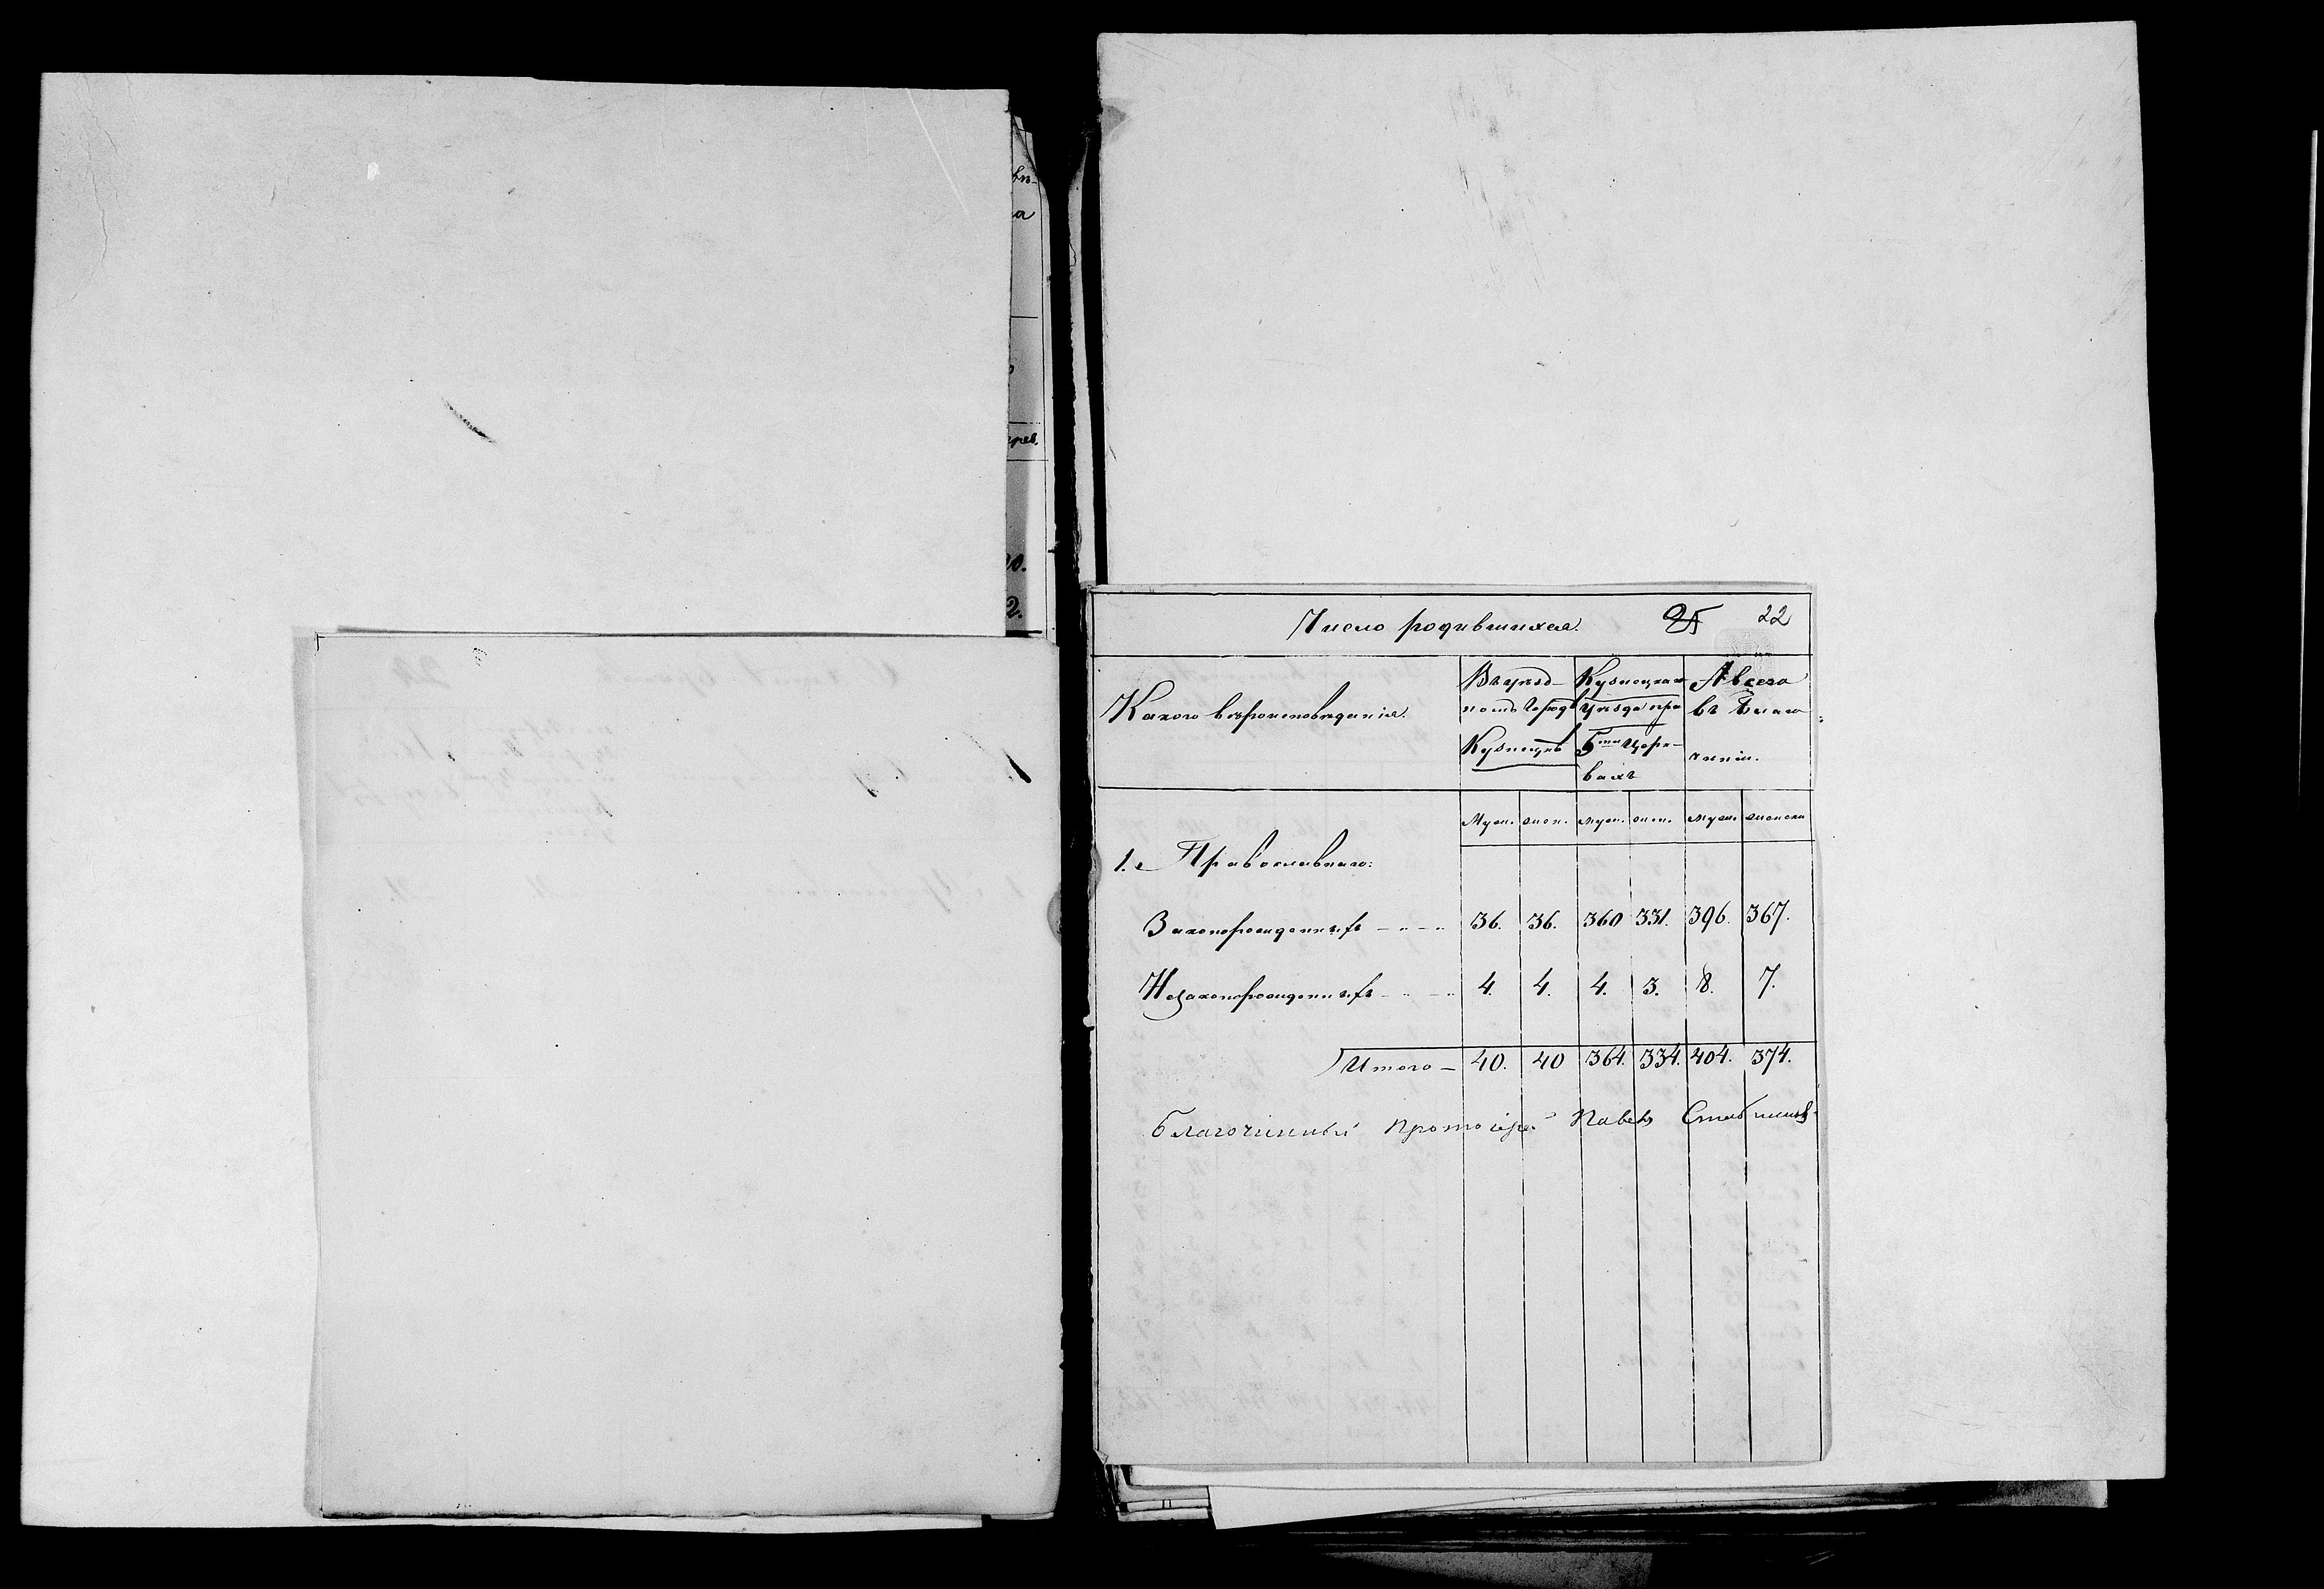 Число родившихся. 25 22
Какого вѣроисповѣданія.
Въ уѣзд-
номъ городѣ
Кузнецкѣ
Кузнецкаго
уѣзда при
5ти церк-
вахъ
А всего
въ благо
чиніи.
Муж. жен. муж. жен. муж. женски
1. Православнаго:
Законорожденныхъ 36. 36. 360 331. 396. 367.
Незаконорожденныхъ 4. 4. 4. 3. 8. 7.
Итого — 40. 40 364. 334. 404. 374.
Благочинный протоіерей Павелъ